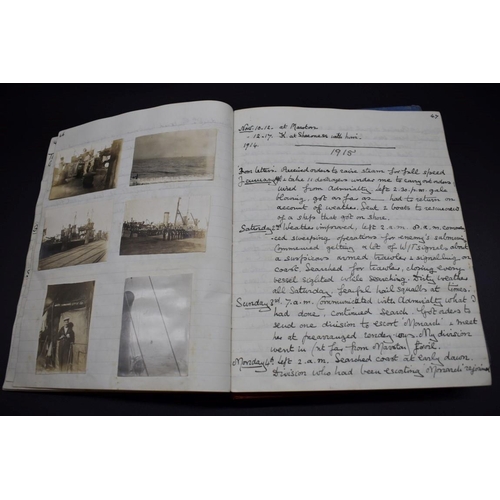 47
Nov. 10-12. at Marlow
12-17. D. at Sheerness with him.
1914
1915
From letters. Received orders to raise steam for full speed
January & take 11 destroyers under me to carry out orders
from Admiralty left 2.30. p.m. gale
blowing, got as far as had to return on
account of weather. Sent 2 boats to rescue
of a ship that got on shore.
Saturday 2nd Weather improved, left 2 a.m. 8. a.m. commen-
ced sweeping operations for enemy's submarines
Commenced getting a lot of W/T signals about
a suspicious armed trawler signalling on
coast. Searched for trawler, closing every
vessel sighted while searching. Dirty weather
all Saturday, fearful hail squalls at times.
Sunday 3rd 7.a.m. Communicated with Admiralty what I
had done, continued search. Got orders to
send one division to escort Monarch & meet
her at prearranged rendezvous. My division
went in as far as from
Monday 4th Left 2. a.m. Searched coast at early dawn.
Division who had been escorting Monarch rejoined